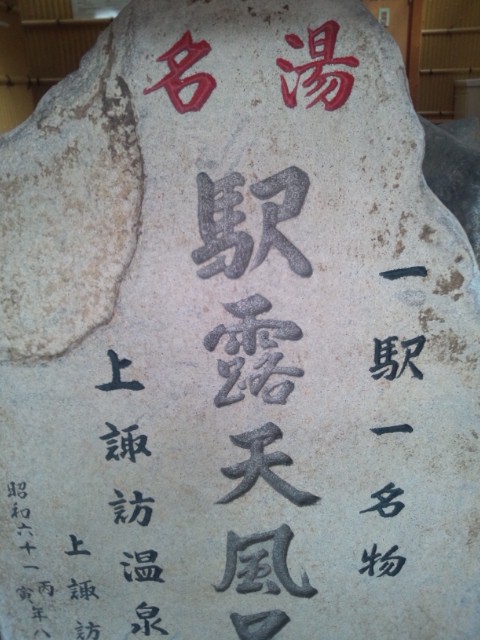 名湯
一駅一名物
駅露天風呂
上諏訪温泉
上諏訪
昭和六十一丙寅年八